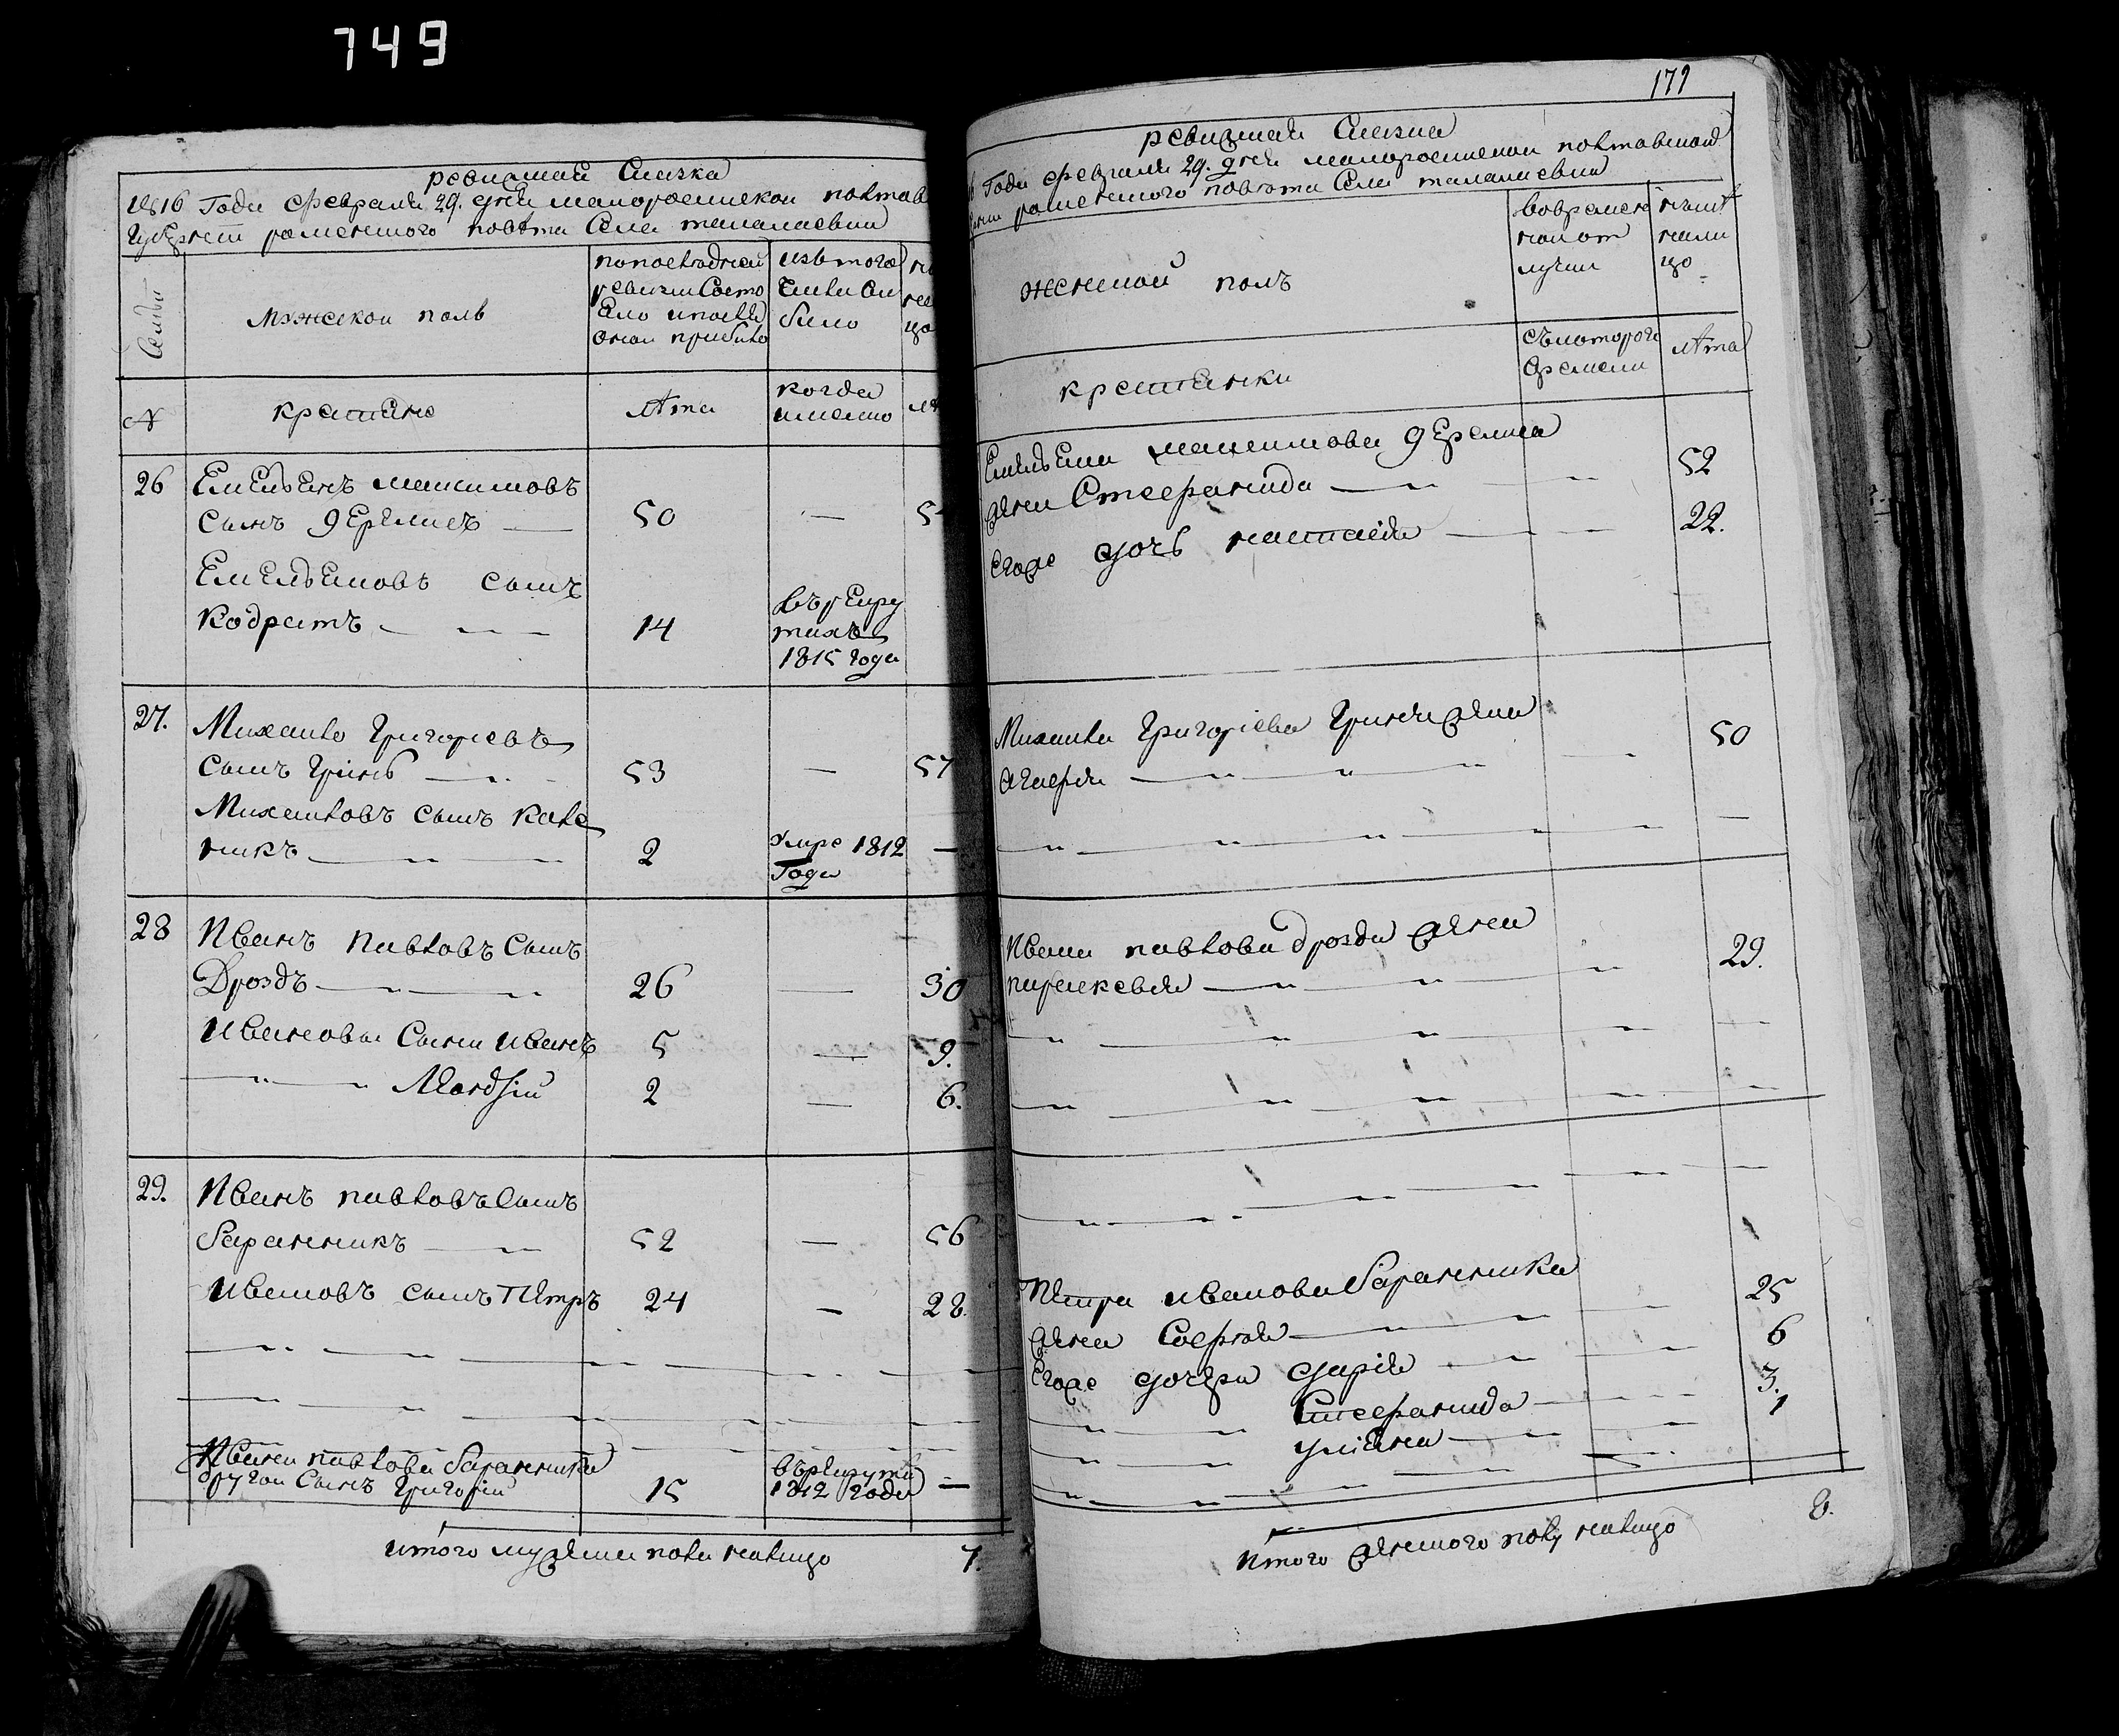 749
ревизская Сказка
1816 Года Февраля 29. дня малоросииской полтав
Губернги роменского повѣта Села талалаевки
Семьи
Мужеской полъ
попоследней
ревизии Состо
Яло и после
оной прибыло
изъ того
Числа
было
№
крестяне
лѣта
когда
именно
26
Емельянъ максимовъ
сынъ
50
—
Емельяновъ сынъ
Кодратъ
14
въ рекру
тахъ
1815 года
27.
Михаило Григориевъ
сынъ Гринь
53
—
57
Михаиловъ сынъ Кале
никъ
2
умре 1812
Года
—
28
Иванъ павловъ сынъ
Дроздъ
26
—
30
Ивановы Сыни Иванъ
5
—
9.
2
—
6.
29.
Иванъ павловъ сынъ
баранникъ
52
—
56
Ивановъ сынъ Петръ
24
—
28.
Ивана павлова баранника
другои Сынъ Григорій
15
въ рекруты
1812 года
—
итого мужеска пола налицо
7.
179
ревизская Сказка
Года Февраля 29. дня малоросииской полтавской
роменского повѣта Села талалаевки
женской полъ
вовремен
ной от
лучки
нынѣ
нали
цо
крестянки
съ которого
времени
лѣта
Емельяна максимова
жена Стефанида
52
Егоже дочь настасія
22.
Михаила Григоріева Гриня жена
50
Ивана павлова дрозда жена
параскевія
29.
Петра иванова баранника
жена Софія
25
Егоже дочери дарія
6
Стефанида
3.
уліяна
1
Итого женского полу налицо
8.